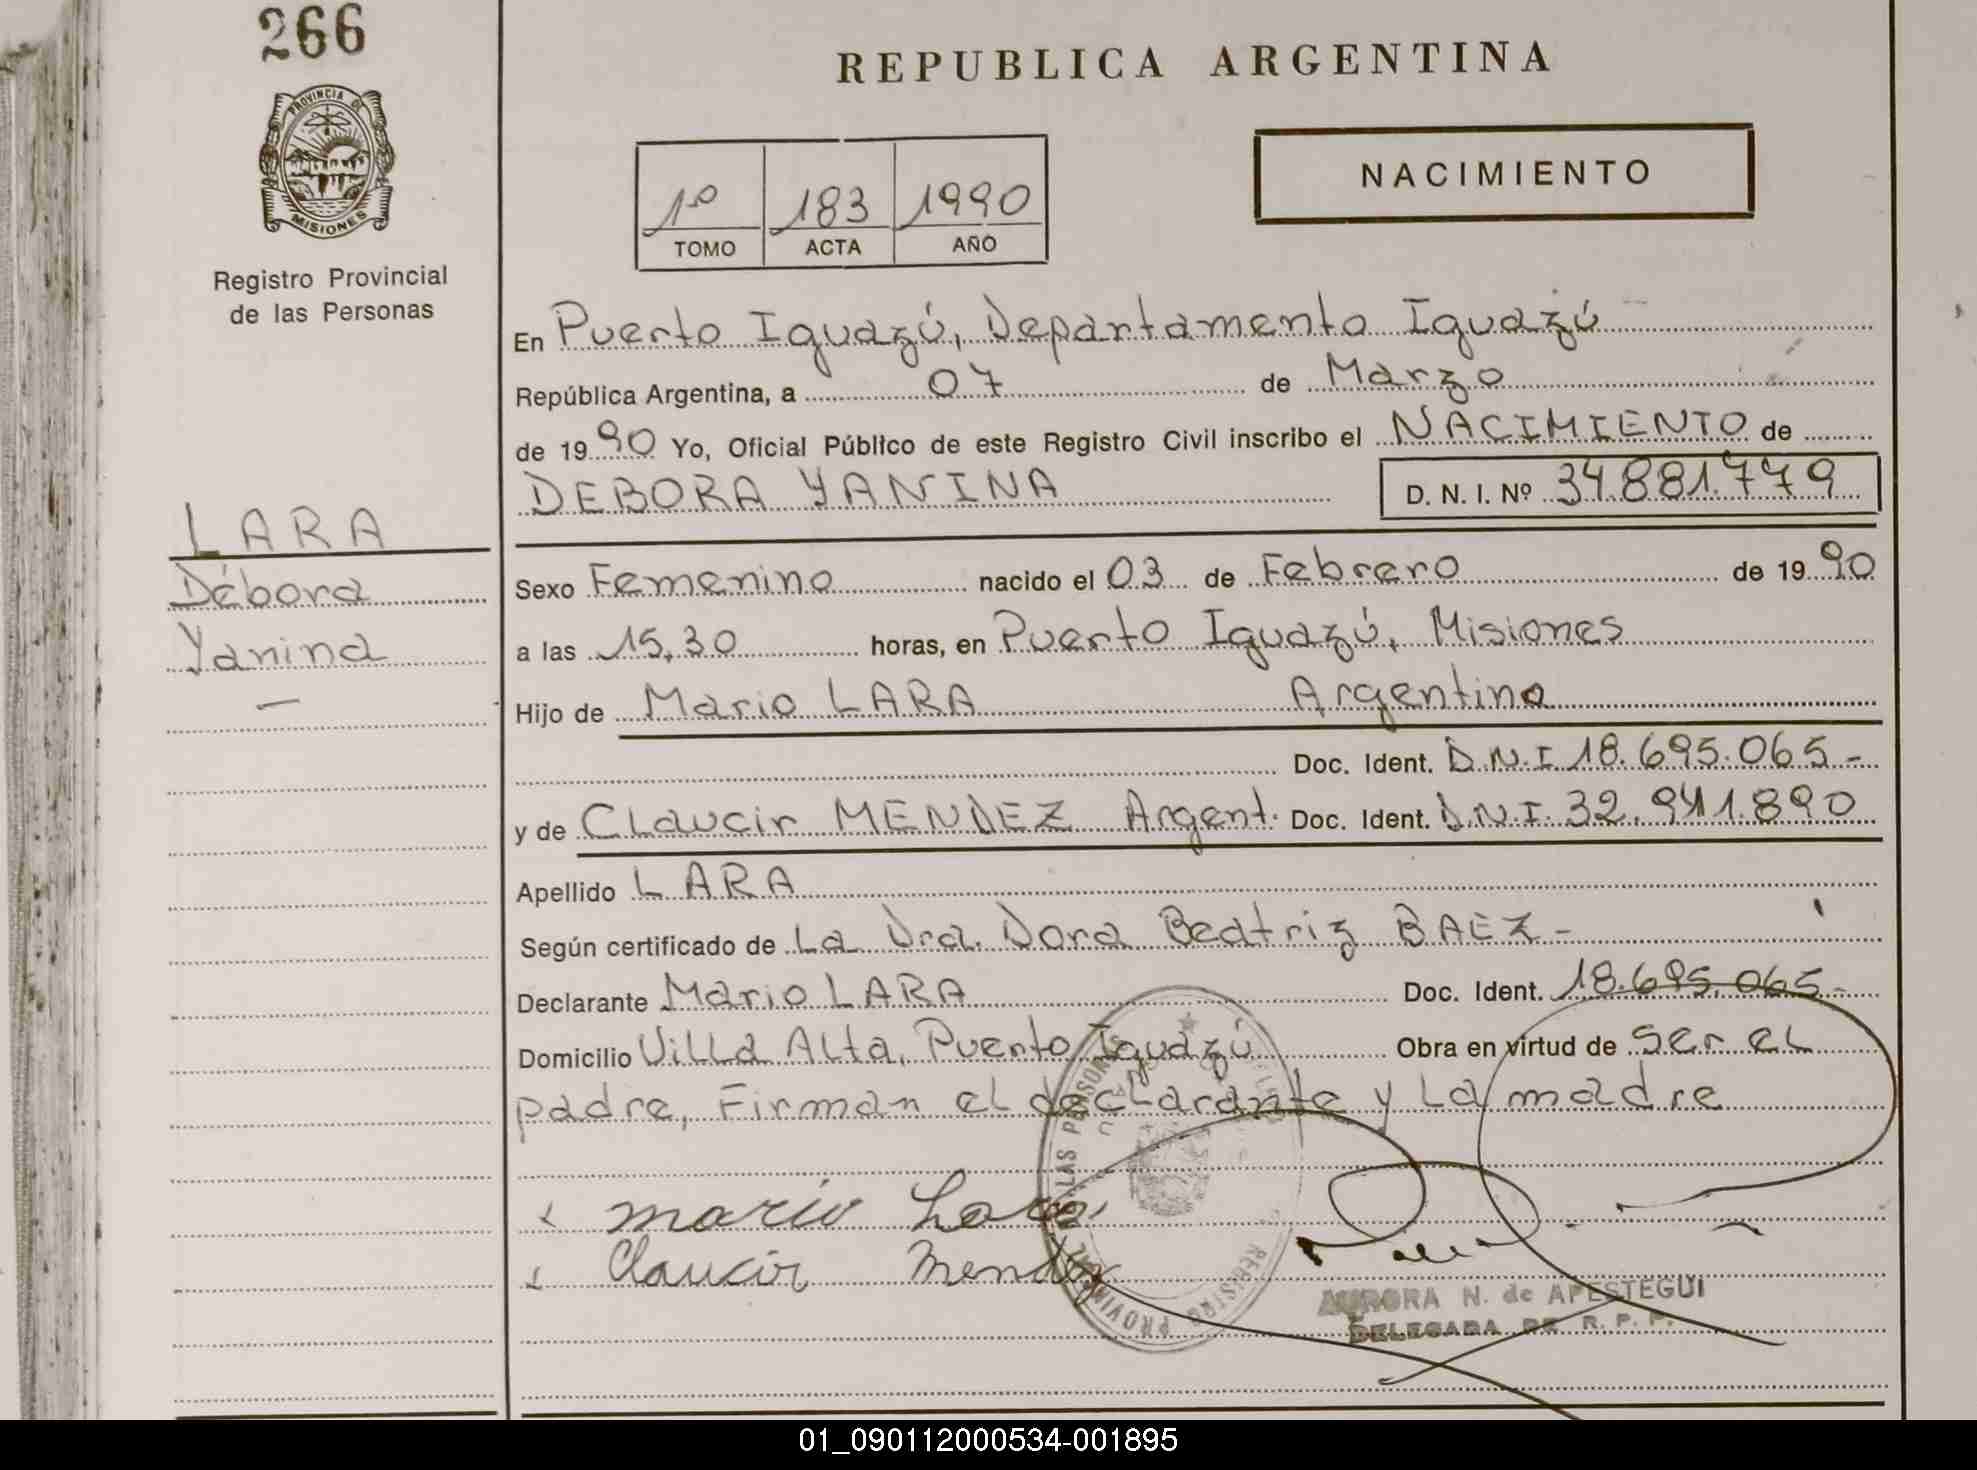 266
PROVINCIA DE
MISIONES
Registro Provincial
de las Personas
REPUBLICA ARGENTINA
1º 183 1990
TOMO ACTA AÑO
NACIMIENTO
En Puerto Iguazú, Departamento Iguazú
República Argentina, a 07 de Marzo
de 1990 Yo, Oficial Público de este Registro Civil inscribo el NACIMIENTO de
DEBORA YANINA D. N. I. Nº 34.881.779
LARA
Débora
Yanina
Sexo Femenino nacido el 03 de Febrero de 1990
a las 15,30 horas, en Puerto Iguazú, Misiones
Hijo de Mario LARA Argentino
Doc. Ident. D.N.I 18.695.065-
y de Claucir MENDEZ Argent. Doc. Ident. D.N.I. 32.941.890
Apellido LARA
Según certificado de La Dra. Dora Beatriz BAEZ-
Declarante Mario LARA Doc. Ident. 18.695.065-
Domicilio Villa Alta, Puerto Iguazú Obra en virtud de ser el
padre, Firman el declarante y la madre
mario Lara
Claucir Mendez
REGISTRO PROVINCIAL LAS PERSONAS
AURORA N. de APESTEGUI
DELEGADA DE R. P. P.
01_090112000534-001895